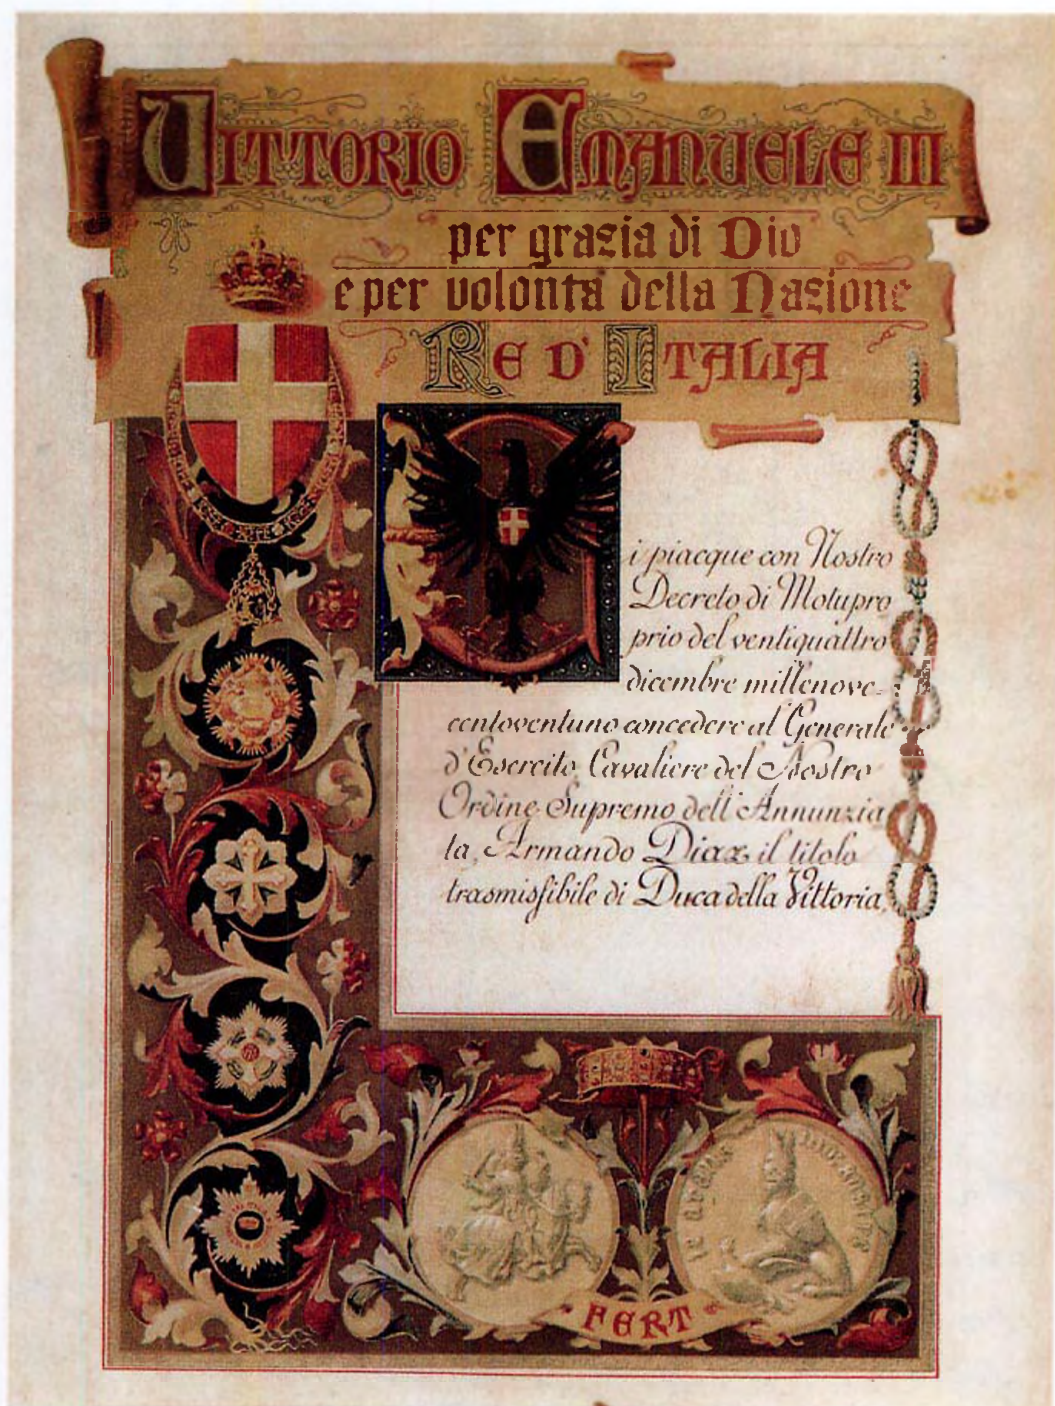 VITTORIO EMANUELE III
per grazia di Dio
e per volontà della Nazione
RE D' ITALIA
Ci piacque con Nostro
Decreto di Motupro
prio del ventiquattro
dicembre millenove-
centoventuno concedere al Generale
d'Esercito, Cavaliere del Nostro
Ordine Supremo dell'Annunzia
ta, Armando Diaz il titolo
trasmissibile di Duca della Vittoria,
FERT